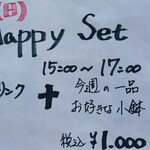 (日)
Happy Set
15:00～17:00
ンク + 今週の一品
お好きな小鉢
税込 ¥1,000